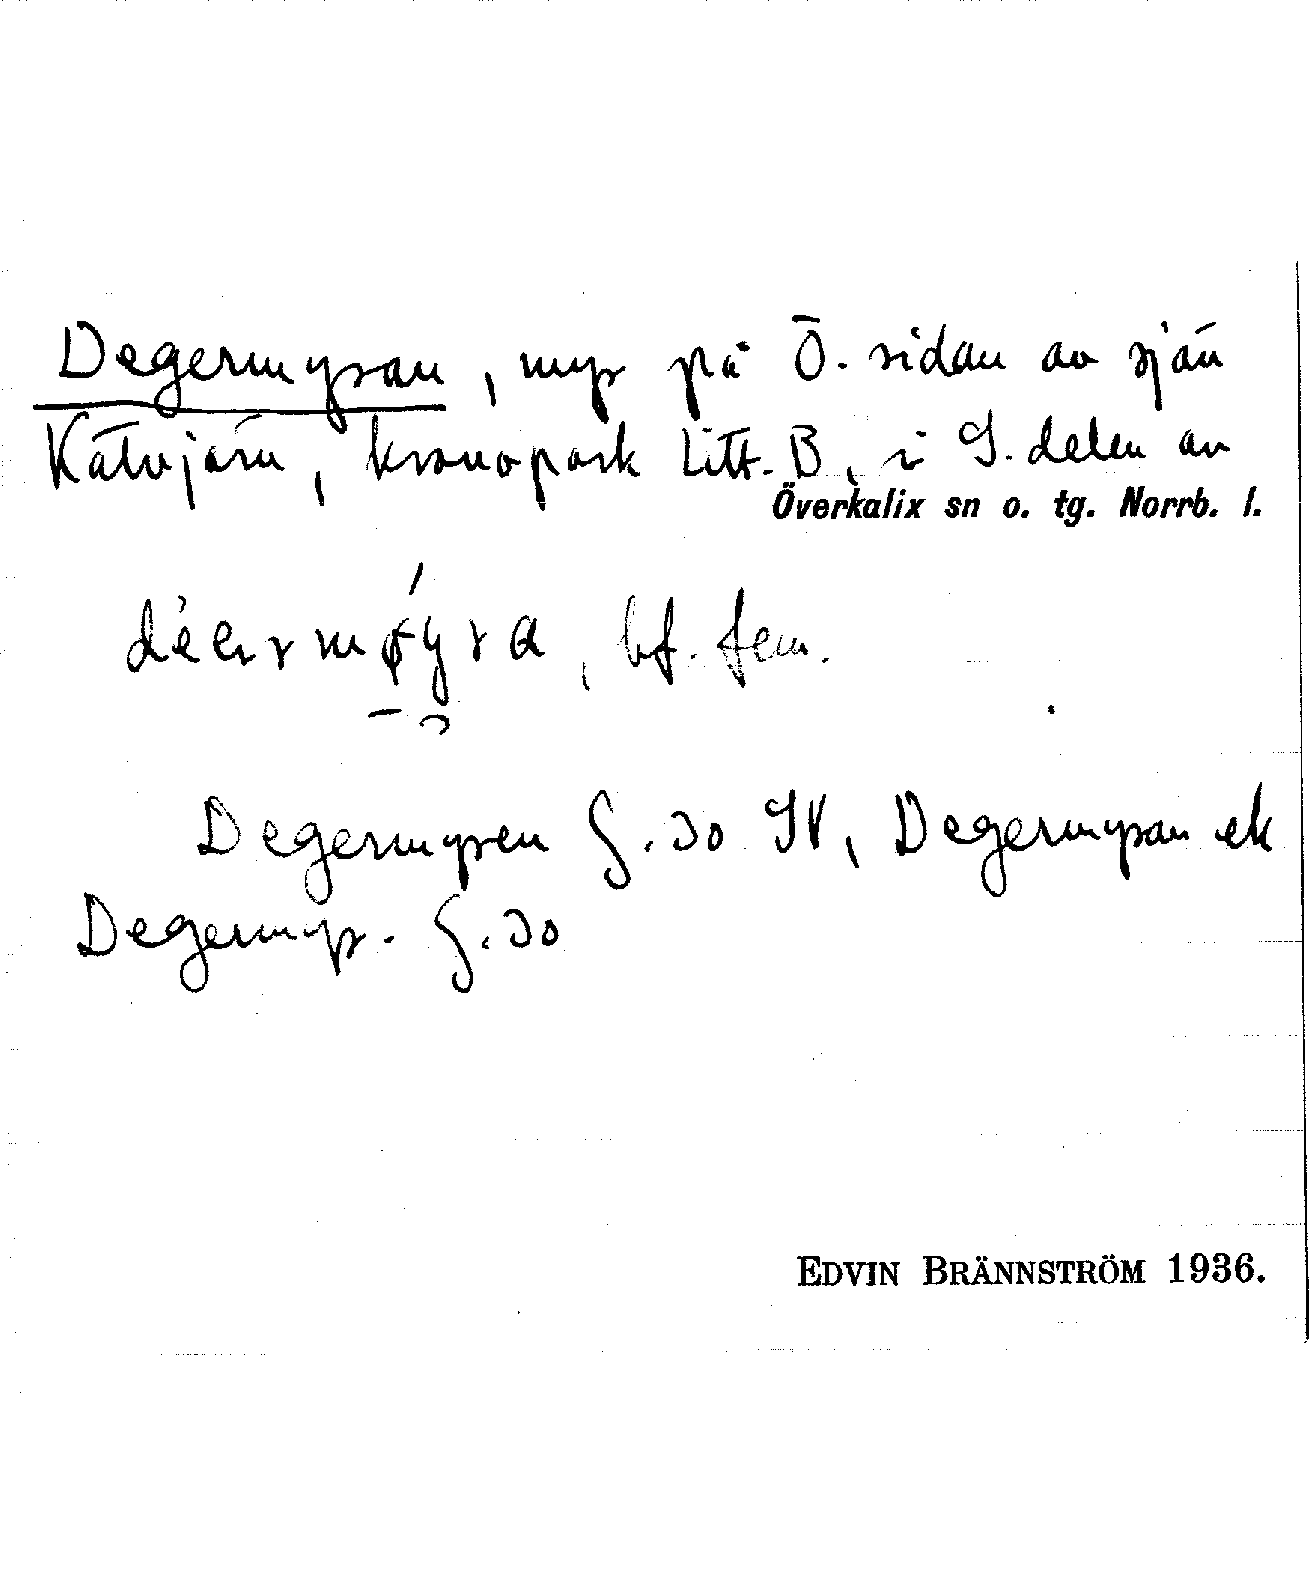 Degermyran, myr på Ö. sidan av sjön
Kätvjärn, kronopark Litt. B, i S. delen av
Överkalix sn o. tg. Norrb. l.
bf. fem.
Degermyren G. 30 SV, Degermyran ek
Degermyr. G. 30
EDVIN BRÄNNSTRÖM 1936.